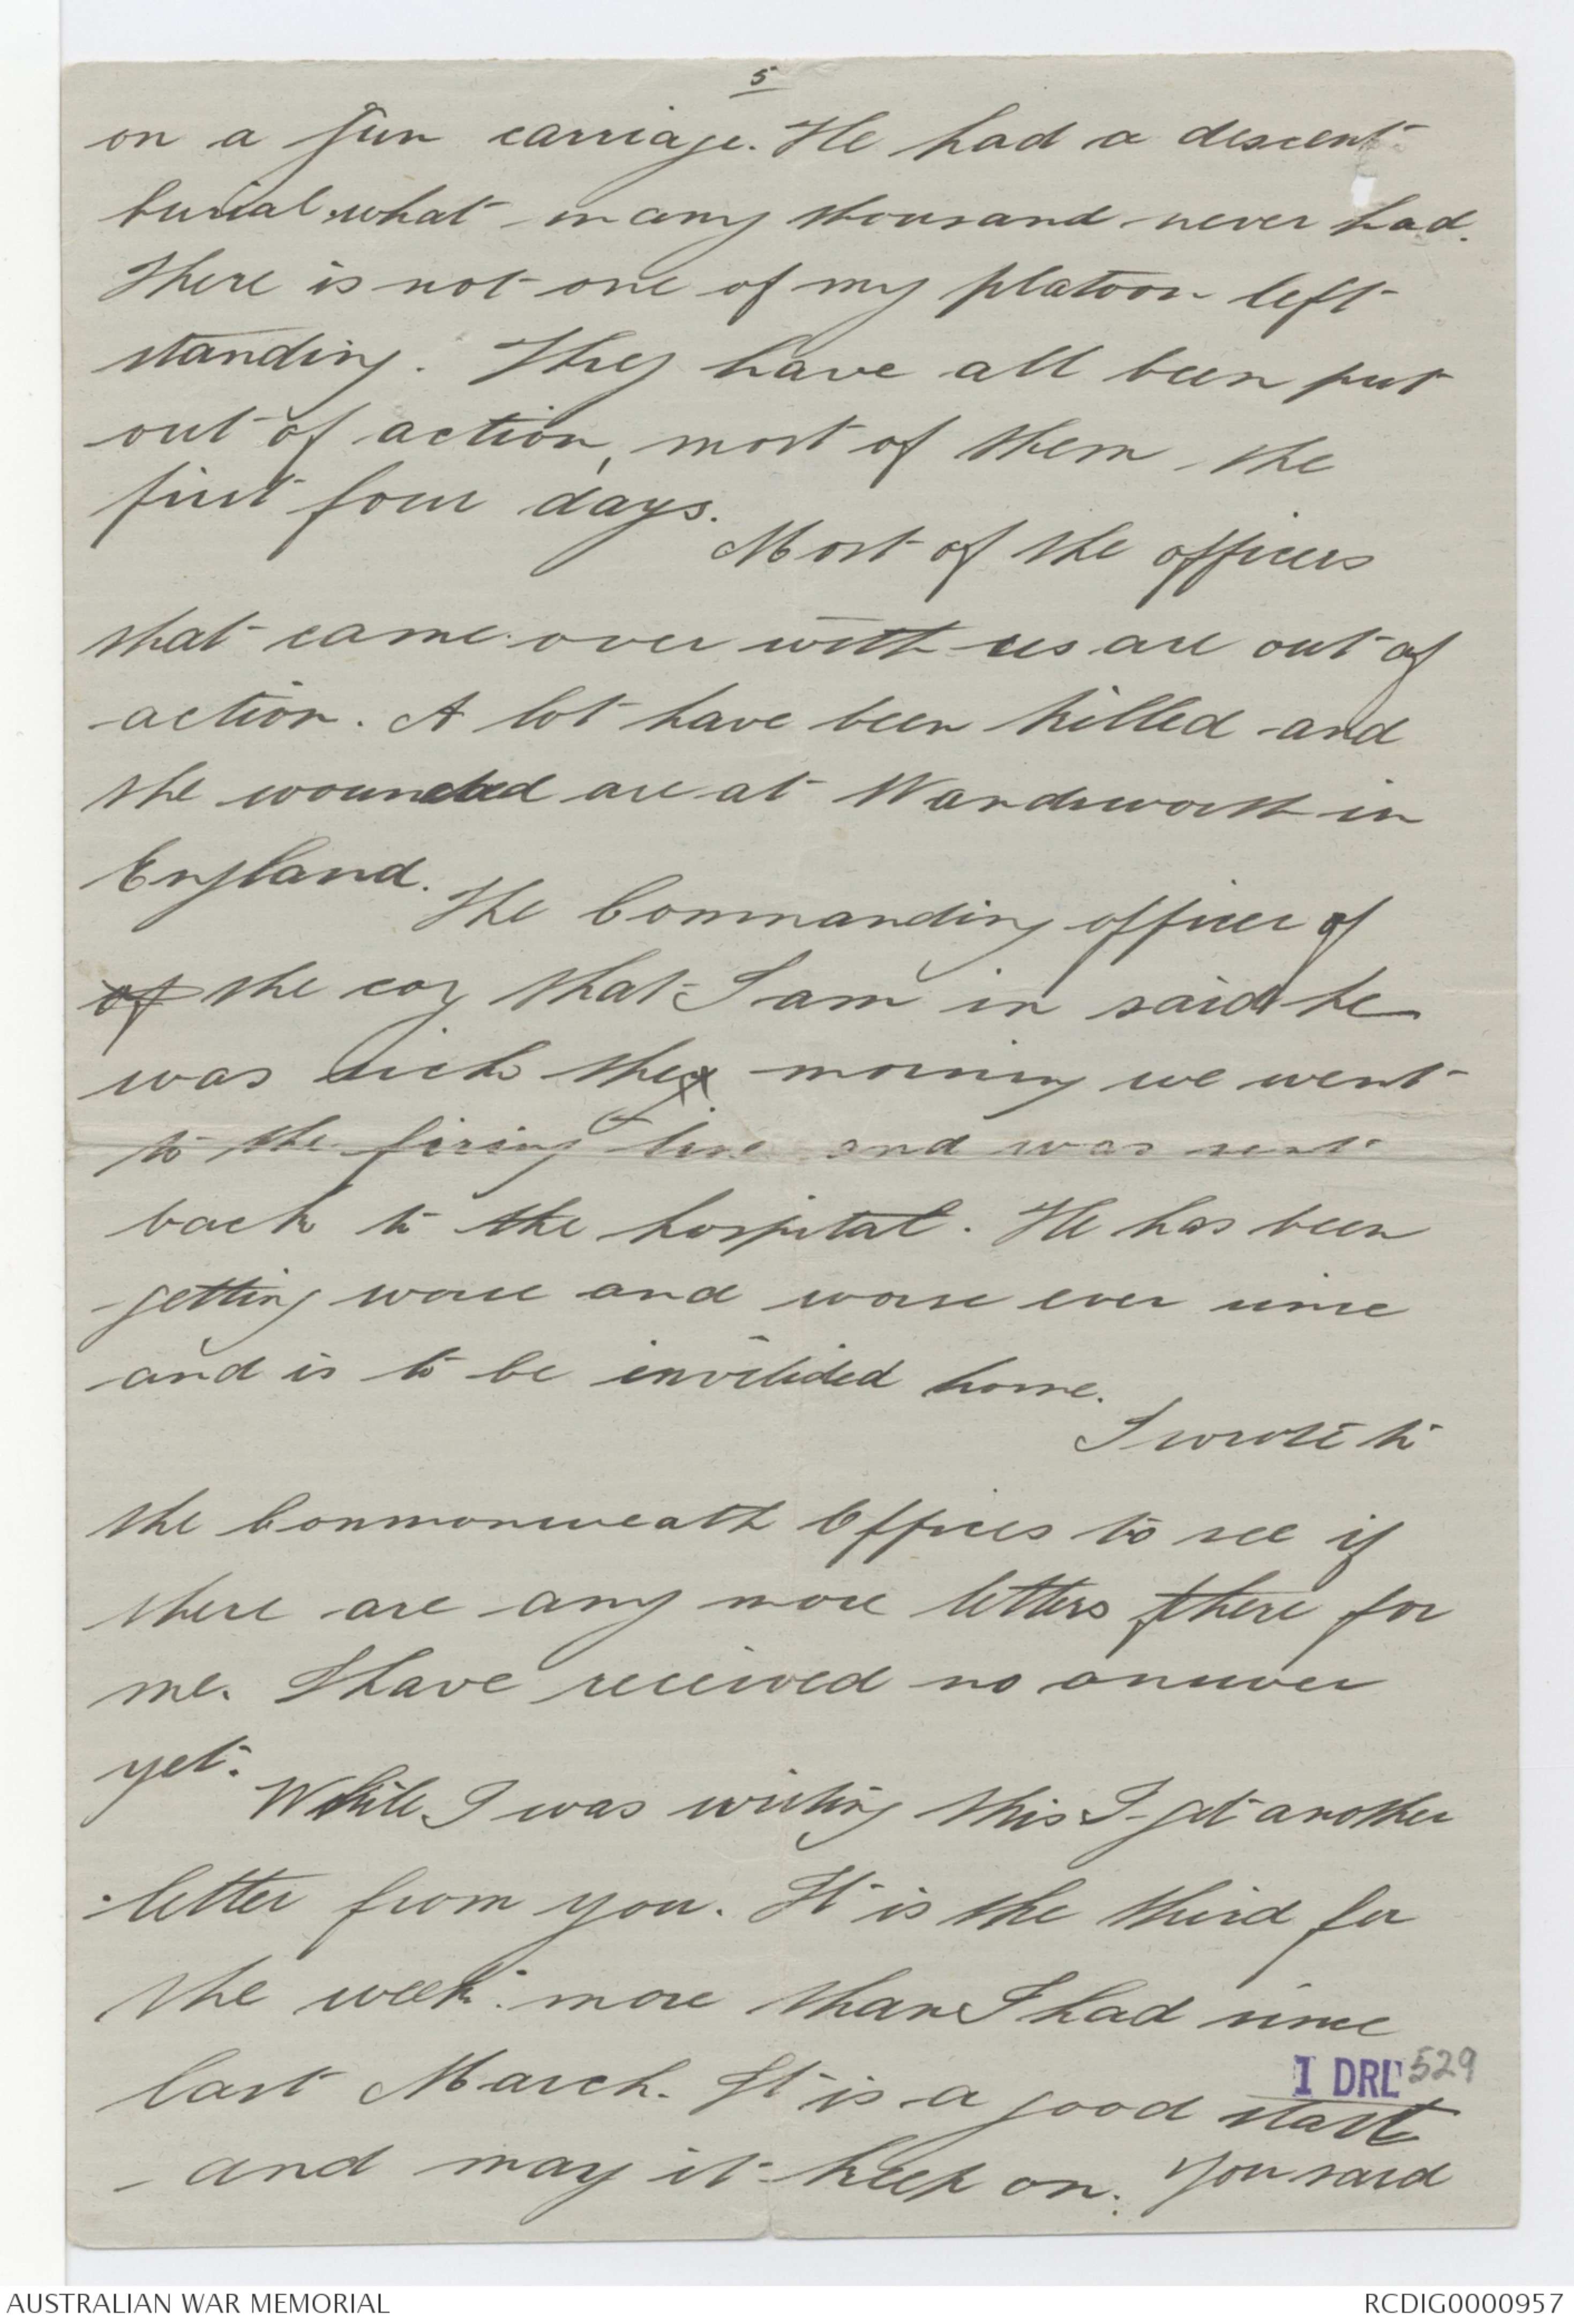 5
on a gun carriage. He had a descent
burial what many thousand never had.
There is not one of my platoon left
standing. They have all been put
out of action, most of them the
first four days.
Most of the officers
that came over with us are out of
action. A lot have been killed and
the wounded are at Wandsworth in
England.
The Commanding officer of
of the coy that I am in said he
was sick the morning we went
to the firing line and was sent
back to the hospital. He has been
getting worse and worse ever since
and is to be invilided home.
I wrote to
the Commonweath Offices to see if
there are any more letters there for
me. I have received no answer
yet.
While I was writing this I got another
letter from you. It is the third for
the week more than I had since
last March. It is a good start
and may it keep on. You said
I DRL 529
AUSTRALIAN WAR MEMORIAL
RCDIG0000957